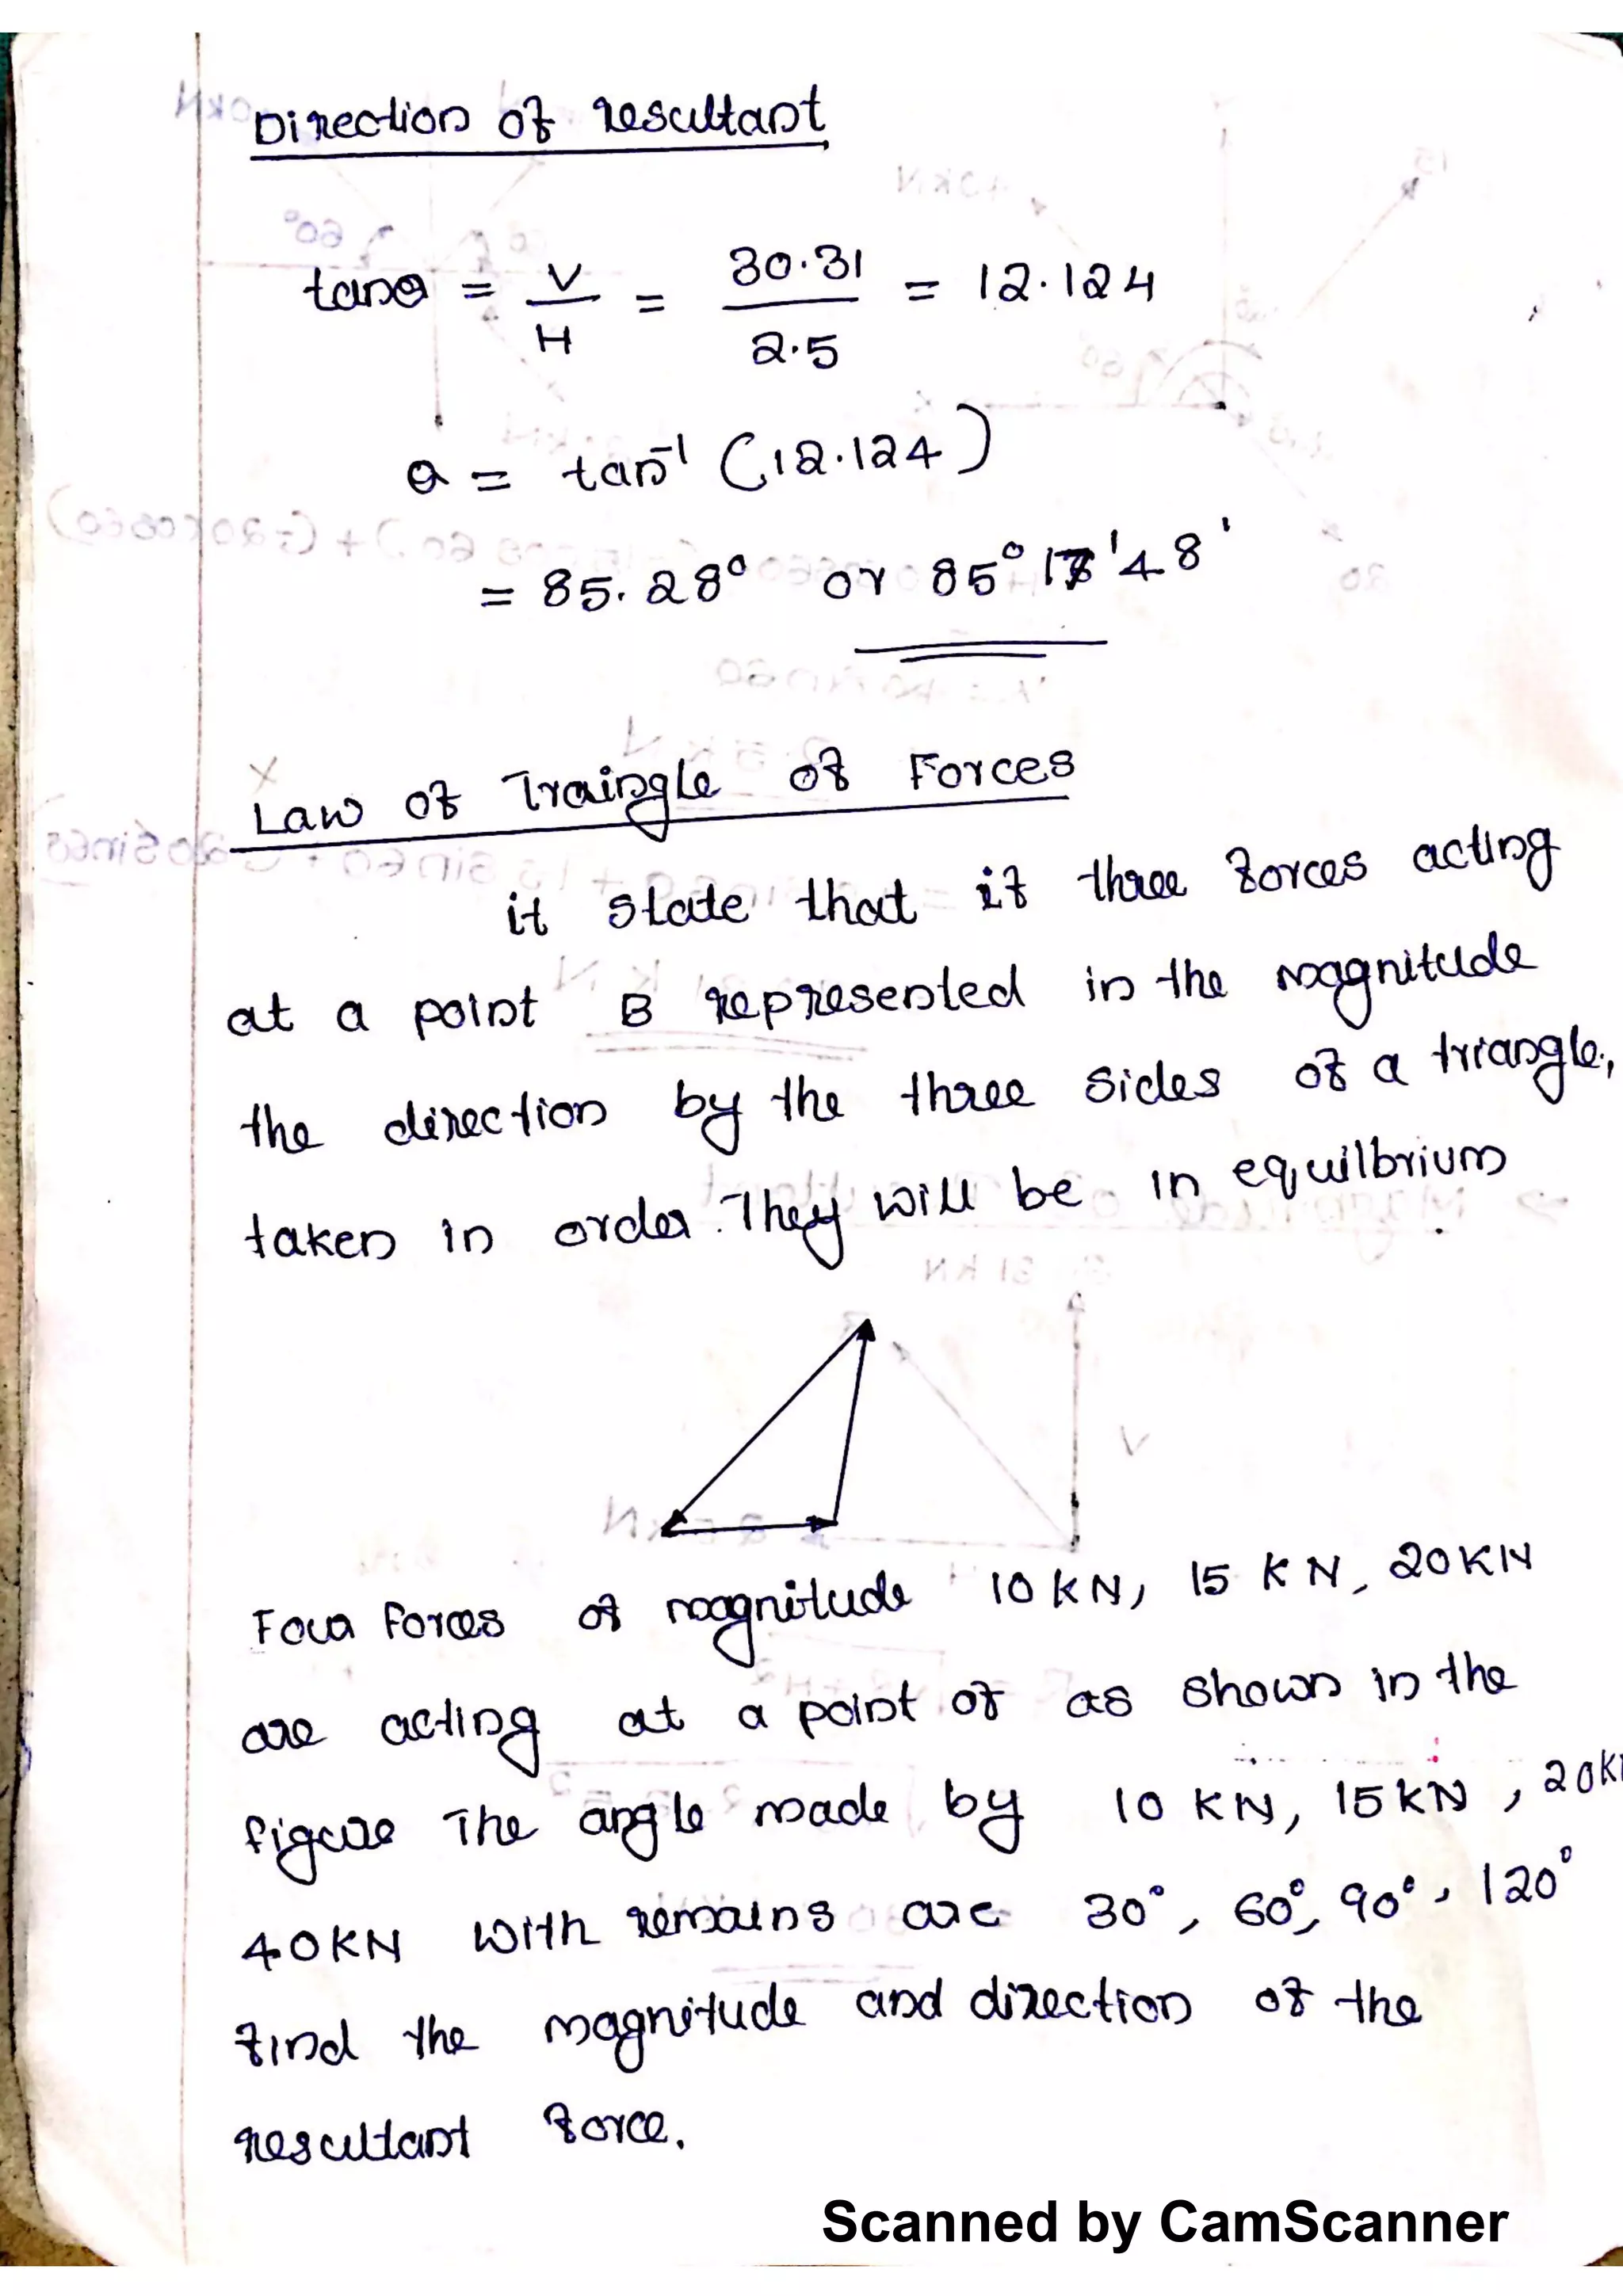 Direction of resultant
tanθ = V/H = 30.31/2.5 = 12.124
θ = tan⁻¹ (12.124)
= 85.28° or 85° 17'48'
Law of Traingle of Forces
it state that if three forces acting
at a point B represented in the magnitude
the direction by the three sides of a triangle,
taken in order. They will be in equilbrium
Four forces of magnitude 10 KN, 15 KN, 20KN
are acting at a point of as shown in the
figure The angle made by 10 KN, 15KN, 20K
40KN with remains are 30°, 60°, 90°, 120°
find the magnitude and direction of the
resultant force.
Scanned by CamScanner